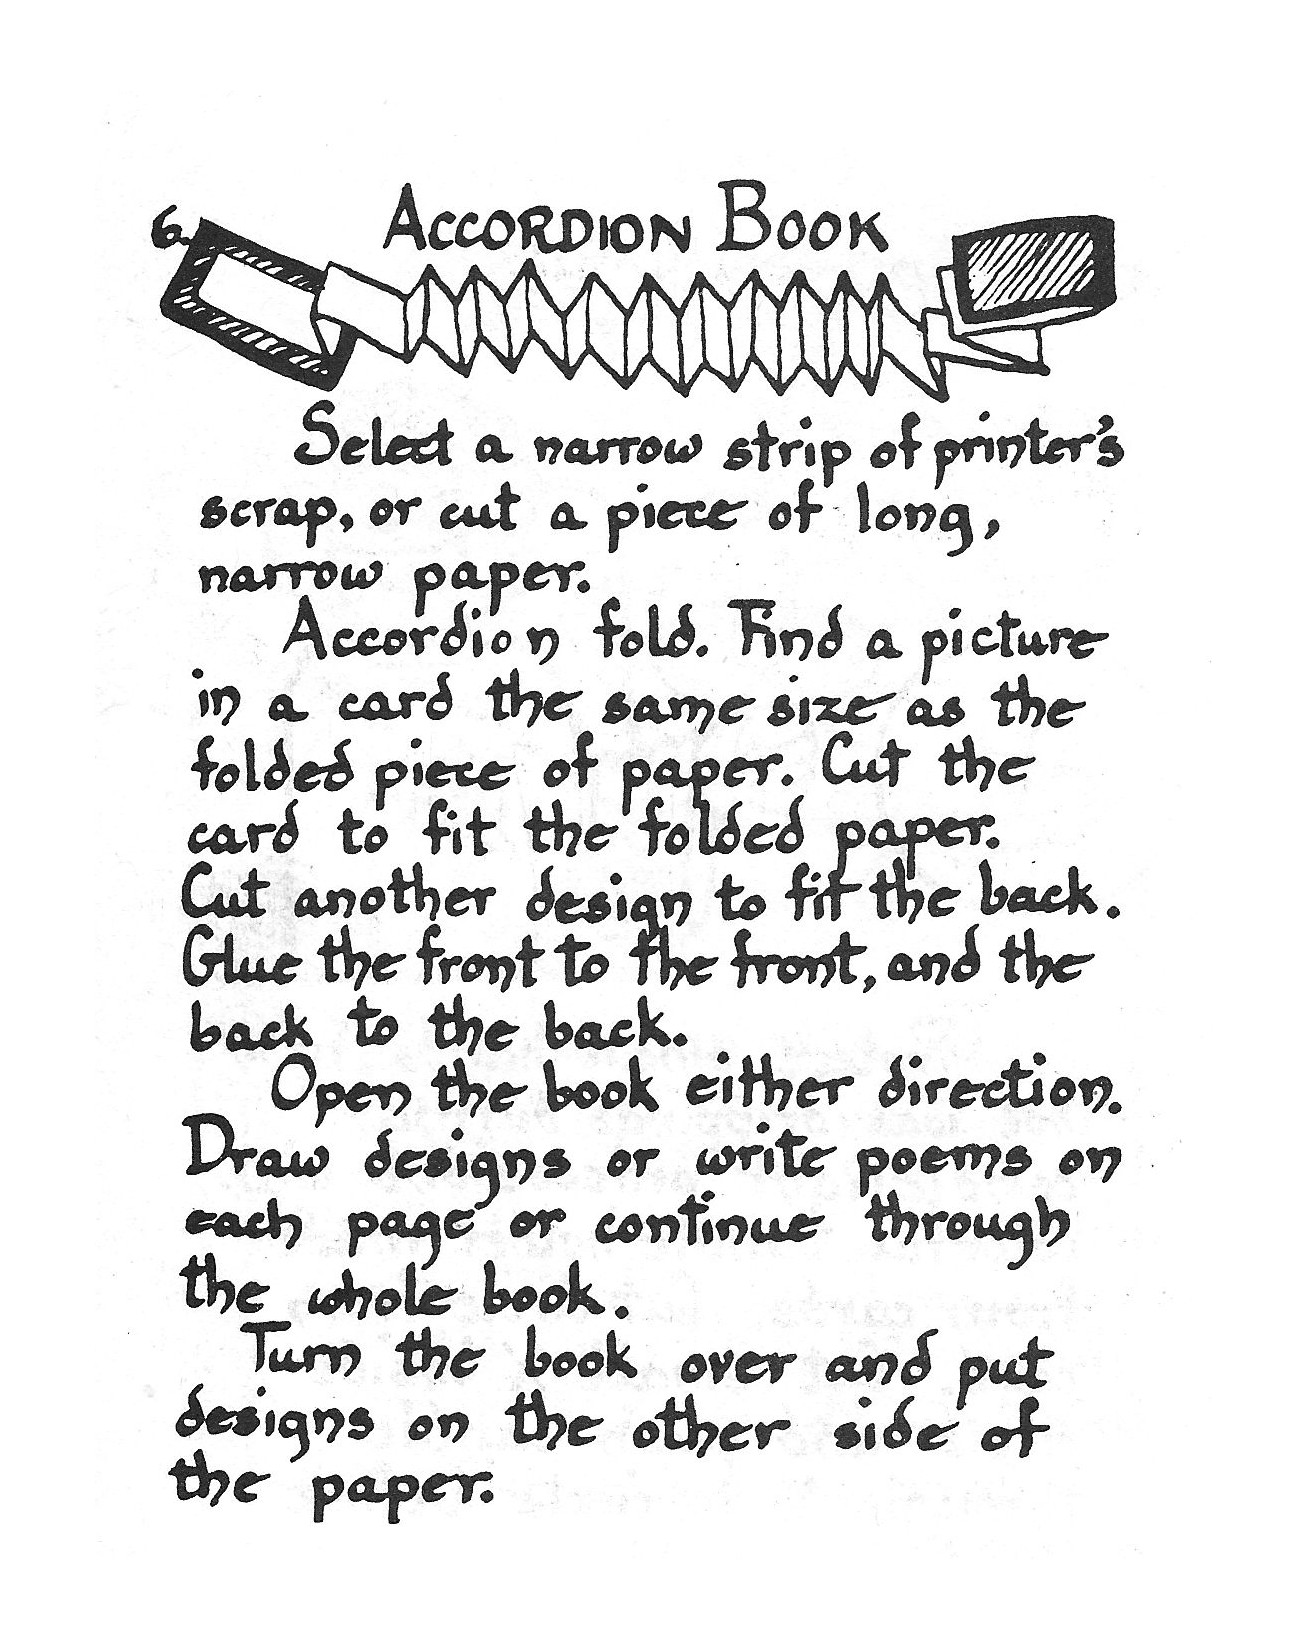 6.
ACCORDION BOOK
Select a narrow strip of printer's
scrap, or cut a piece of long,
narrow paper.
Accordion fold. Find a picture
in a card the same size as the
folded piece of paper. Cut the
card to fit the folded paper.
Cut another design to fit the back.
Glue the front to the front, and the
back to the back.
Open the book either direction.
Draw designs or write poems on
each page or continue through
the whole book.
Turn the book over and put
designs on the other side of
the paper.